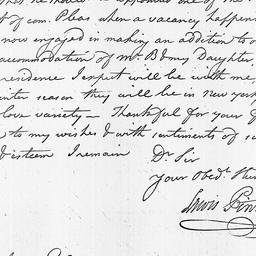 that he should be appointed one of the
t of com. Pleas when a vacancy happen
now engaged in making an addition to
accommodation of Mr. B & my Daughter,
residence I expect will be with me
inter season they will be in new york
love variety — Thankful for your
to my wishes & with sentiments of
& isteem I remain Dr Sir
your Obedt. Hu
Lewis